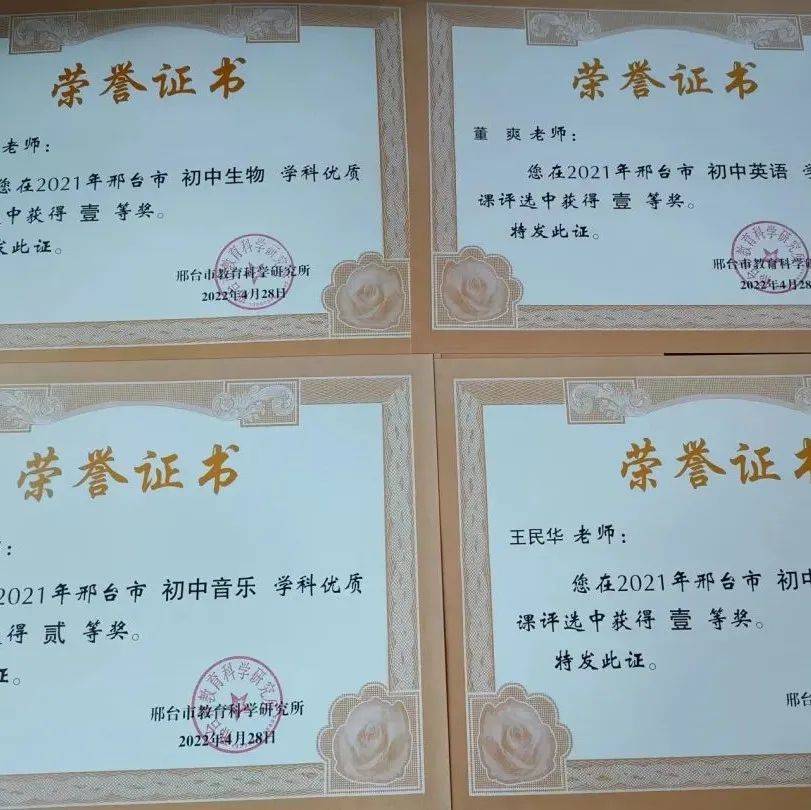 荣誉证书
老师：
您在2021年邢台市 初中生物 学科优质
中获得 壹 等奖。
发此证。
邢台市教育科学研究所
2022年4月28日
荣誉证书
董 爽 老师：
您在2021年邢台市 初中英语
课评选中获得 壹 等奖。
特发此证。
邢台市教育科学
2022年4月28
荣誉证书
：
2021年邢台市 初中音乐 学科优质
得 贰 等奖。
证。
教育科学研究
邢台市教育科学研究所
2022年4月28日
荣誉证
王民华 老师：
您在2021年邢台市 初中
课评选中获得 壹 等奖。
特发此证。
邢台